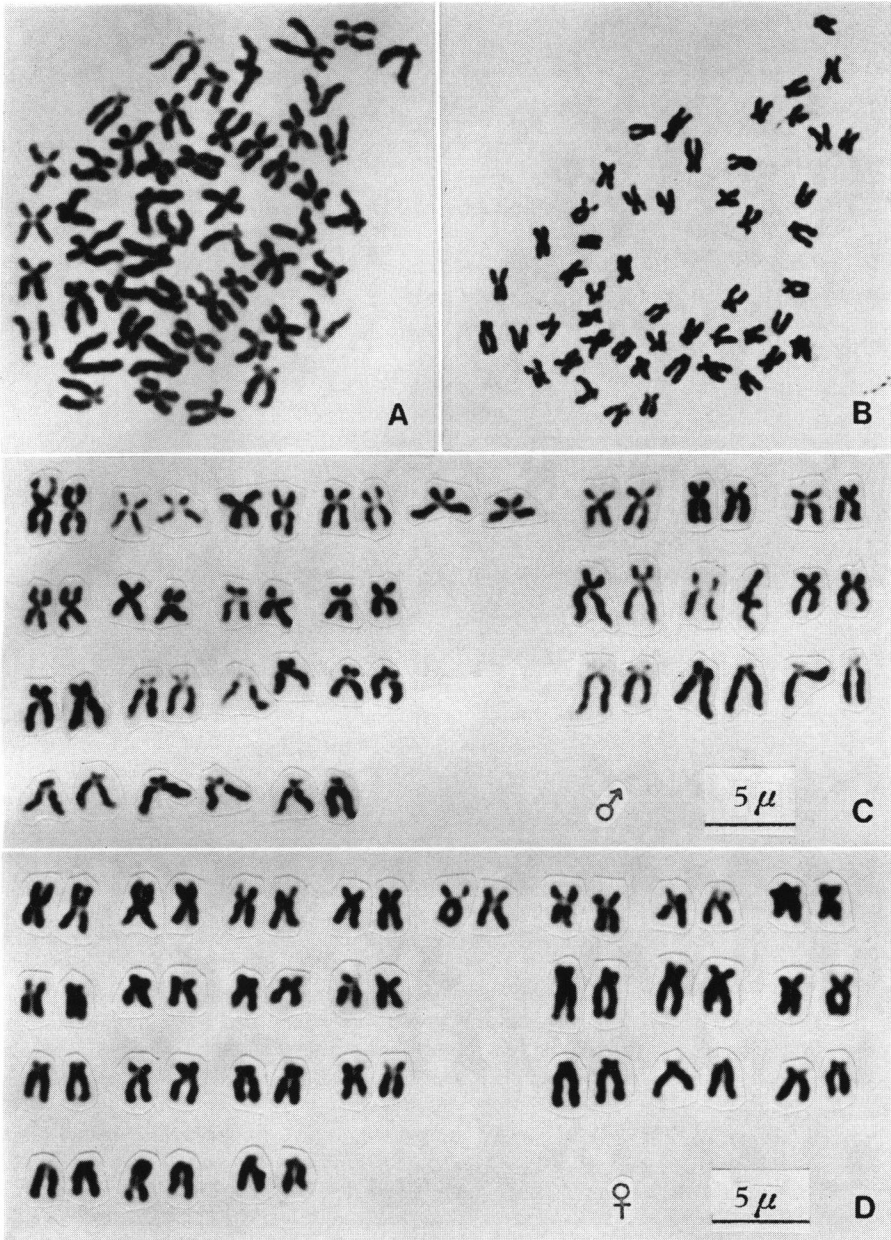 A
B
♂ 5 μ C
♀ 5 μ D